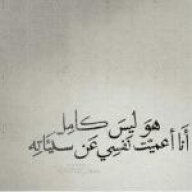 هوَ ليسَ كامِل
أَنا أعميْت نَفسِي عَن سَيئاتِه